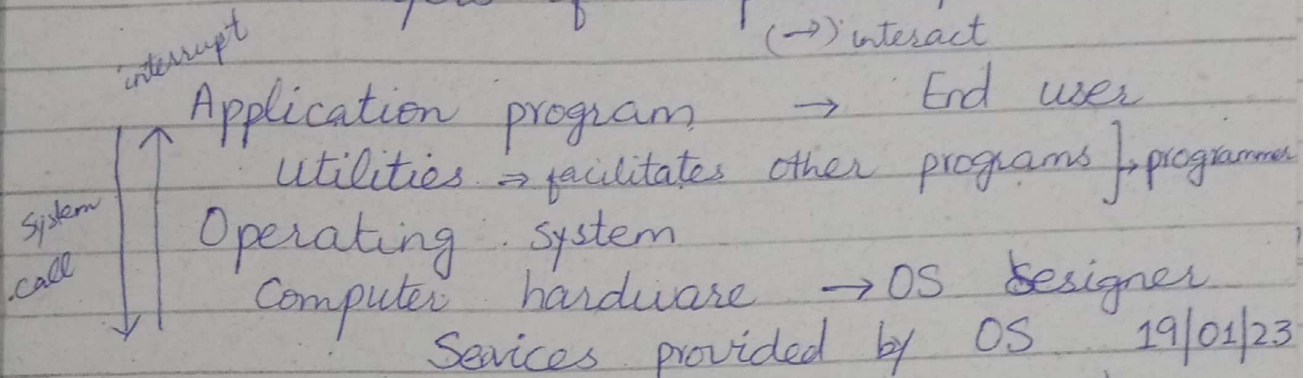 (→) interact
interrupt
Application program → End user
Utilities ⇒ facilitates other programs } → programmer
System
Operating system
call
Computer hardware → OS designer
Sevices provided by OS 19/01/23